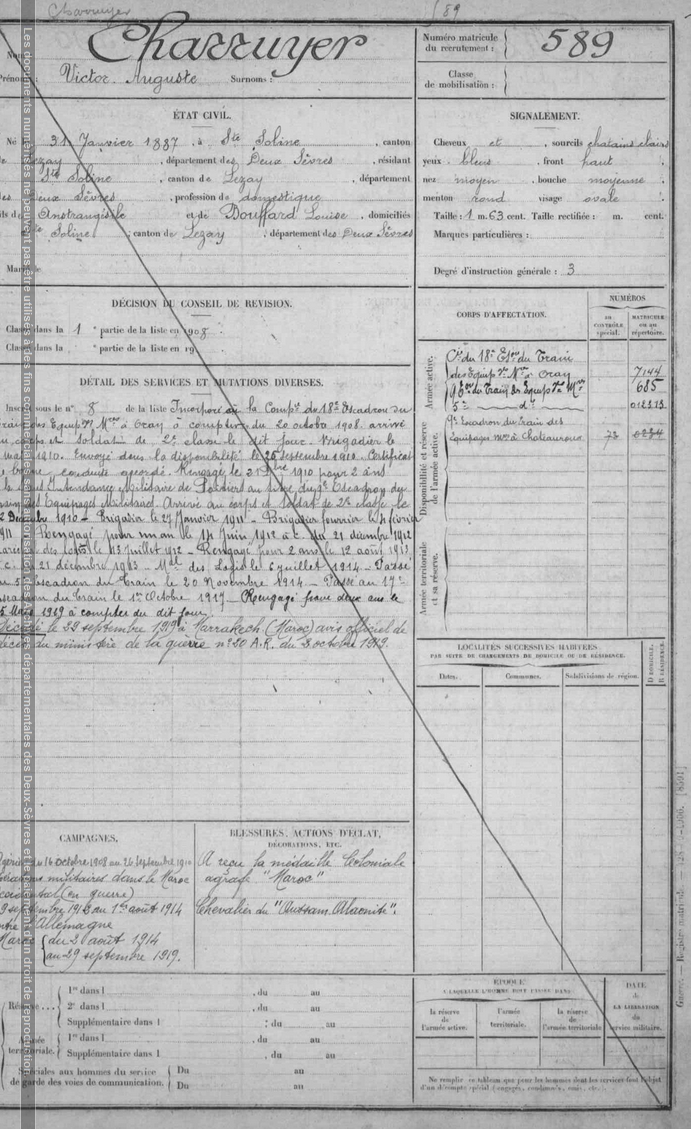 Charruyer
589
Charruyer
Numéro matricule
du recrutement :
589
Victor Auguste Surnoms :
Classe
de mobilisation :
ÉTAT CIVIL.
Né 31 Janvier 1887, à Ste Soline, canton
Lezay, département des Deux Sèvres, résidant
Ste Soline, canton de Lezay, département
Deux Sèvres, profession de domestique
et de Bouffard Louise, domiciliés
Soline, canton de Lezay, département des Deux Sèvres
SIGNALEMENT.
Cheveux et, sourcils chatains clairs
yeux bleus, front haut
nez moyen, bouche moyenne
menton rond visage ovale
Taille : 1 m. 63 cent. Taille rectifiée : m. cent.
Marques particulières :
Degré d'instruction générale : 3
DÉCISION DU CONSEIL DE REVISION.
Classé dans la 1 e partie de la liste en 1908
Classé dans la e partie de la liste en 19
DÉTAIL DES SERVICES ET MUTATIONS DIVERSES.
Inscrit sous le n° 8 de la liste Incorporé à la Compie du 18e Escadron du
Train des Equip. Mres à Oray à compter du 20 octobre 1908, arrivé
au corps et soldat de 2e classe le dit jour. Brigadier le
1910. Envoyé dans la disponibilité le 26 septembre 1910. Certificat
de bonne conduite accordé. Rengagé le 21 1910 pour 2 ans
Intendance Militaire de Poitiers au titre du 9e Escadron du
Train des Equipages Militaires. Arrivé au corps et soldat de 2e classe le
2 Décembre 1910 - Brigadier le 27 Janvier 1911 - Brigadier fourrier le février
1911 Rengagé pour un an le 14 Juin 1912 à c. du 21 décembre 1912
des logis le 13 juillet 1912 - Rengagé pour 2 ans le 12 août 1913
à c. 21 décembre 1913 - Mal des Logis le 6 juillet 1914 - Passé
escadron du train le 20 Novembre 1914 - Passé au 17e
escadron du train le 1er Octobre 1917 - Rengagé pour deux ans le
5 Mars 1919 à compter du dit jour.
Décédé le 29 septembre 1919 à Marrakech (Maroc) avis officiel de
décès du ministère de la guerre n° 20 A.K. du 3 octobre 1919.
CORPS D'AFFECTATION.
NUMÉROS
au
CONTRÔLE
spécial.
MATRICULE
ou au
répertoire.
Armée active.
Cie du 18e Esc du Train
des Equip Mres à Oray 7144
9 Esc du Train des Equip Mres 685
5e d° 012313
Disponibilité et réserve
de l'armée active.
9e Escadron du train des
équipages mres à Chateauroux 73 0234
Armée territoriale
et sa réserve.
LOCALITÉS SUCCESSIVES HABITÉES
PAR SUITE DE CHANGEMENTS DE DOMICILE OU DE RÉSIDENCE.
Dates.
Communes.
Subdivisions de région.
D DOMICILE,
R RÉSIDENCE.
CAMPAGNES.
Algérie du 16 octobre 1908 au 26 septembre 1910
Opérations militaires dans le Maroc
occidental (en guerre)
septembre 1912 au 1er août 1914
contre l'Allemagne
Maroc du 2 août 1914
au 29 septembre 1919.
BLESSURES, ACTIONS D'ÉCLAT,
DÉCORATIONS, ETC.
A reçu la médaille Coloniale
agrafe "Maroc"
Chevalier du "Ouissam Alaouite".
1re dans l , du au
Réserve 2e dans l , du au
Supplémentaire dans l : du au
1re dans l , du au
territoriale. Supplémentaire dans l , du au
Spéciales aux hommes du service Du au
de garde des voies de communication. Du au
ÉPOQUE
À LAQUELLE L'HOMME DOIT PASSER DANS
la réserve
de
l'armée active.
l'armée
territoriale.
la réserve
de
l'armée territoriale
DATE
de
LA LIBÉRATION
du
service militaire.
Ne remplir ce tableau que pour les hommes dont les services font l'objet
d'un décompte spécial (engagés, condamnés, omis, etc.